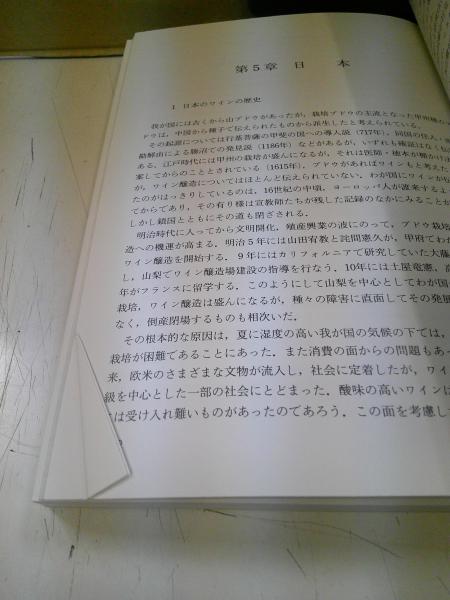 第5章 日 本
1 日本のワインの歴史
我が国には古くから山ブドウがあったが，栽培ブドウの主流となった甲州種の
ドウは，中国から種子で伝えられたものから派生したと考えられている．
その起源については行基菩薩の甲斐の国への導入説（717年），同国の住人・
勘解由による勝沼での発見説（1186年）などがあるが，いずれも確証はなく伝
ある．江戸時代には甲州の栽培が盛んになるが，それは医師・徳本が棚かけ
案してからのこととされている（1615年）．ブドウがあればワインも考えた
が，ワイン醸造についてはほとんど伝えられていない．わが国にワインが
たのがはっきりしているのは，16世紀の中頃，ヨーロッパ人が渡来するよ
てからであり，その有り様は宣教師たちが残した記録のなかにみることが
しかし鎖国とともにその道も閉ざされる．
明治時代に入ってから文明開化，殖産興業の波にのって，ブドウ栽培
造への機運が高まる．明治5年には山田宥教と詫間憲久が，甲府でわが
ワイン醸造を開始する．9年にはカリフォルニアで研究していた大藤
し，山梨でワイン醸造場建設の指導を行なう．10年には土屋竜憲，高
年がフランスに留学する．このようにして山梨を中心としてわが国の
栽培，ワイン醸造は盛んになるが，種々の障害に直面してその発展
なく，倒産閉場するものも相次いだ．
その根本的な原因は，夏に湿度の高い我が国の気候の下では，
栽培が困難であることにあった．また消費の面からの問題もあっ
来，欧米のさまざまな文物が流入し，社会に定着したが，ワイ
級を中心とした一部の社会にとどまった．酸味の高いワインに
は受け入れ難いものがあったのであろう．この面を考慮し